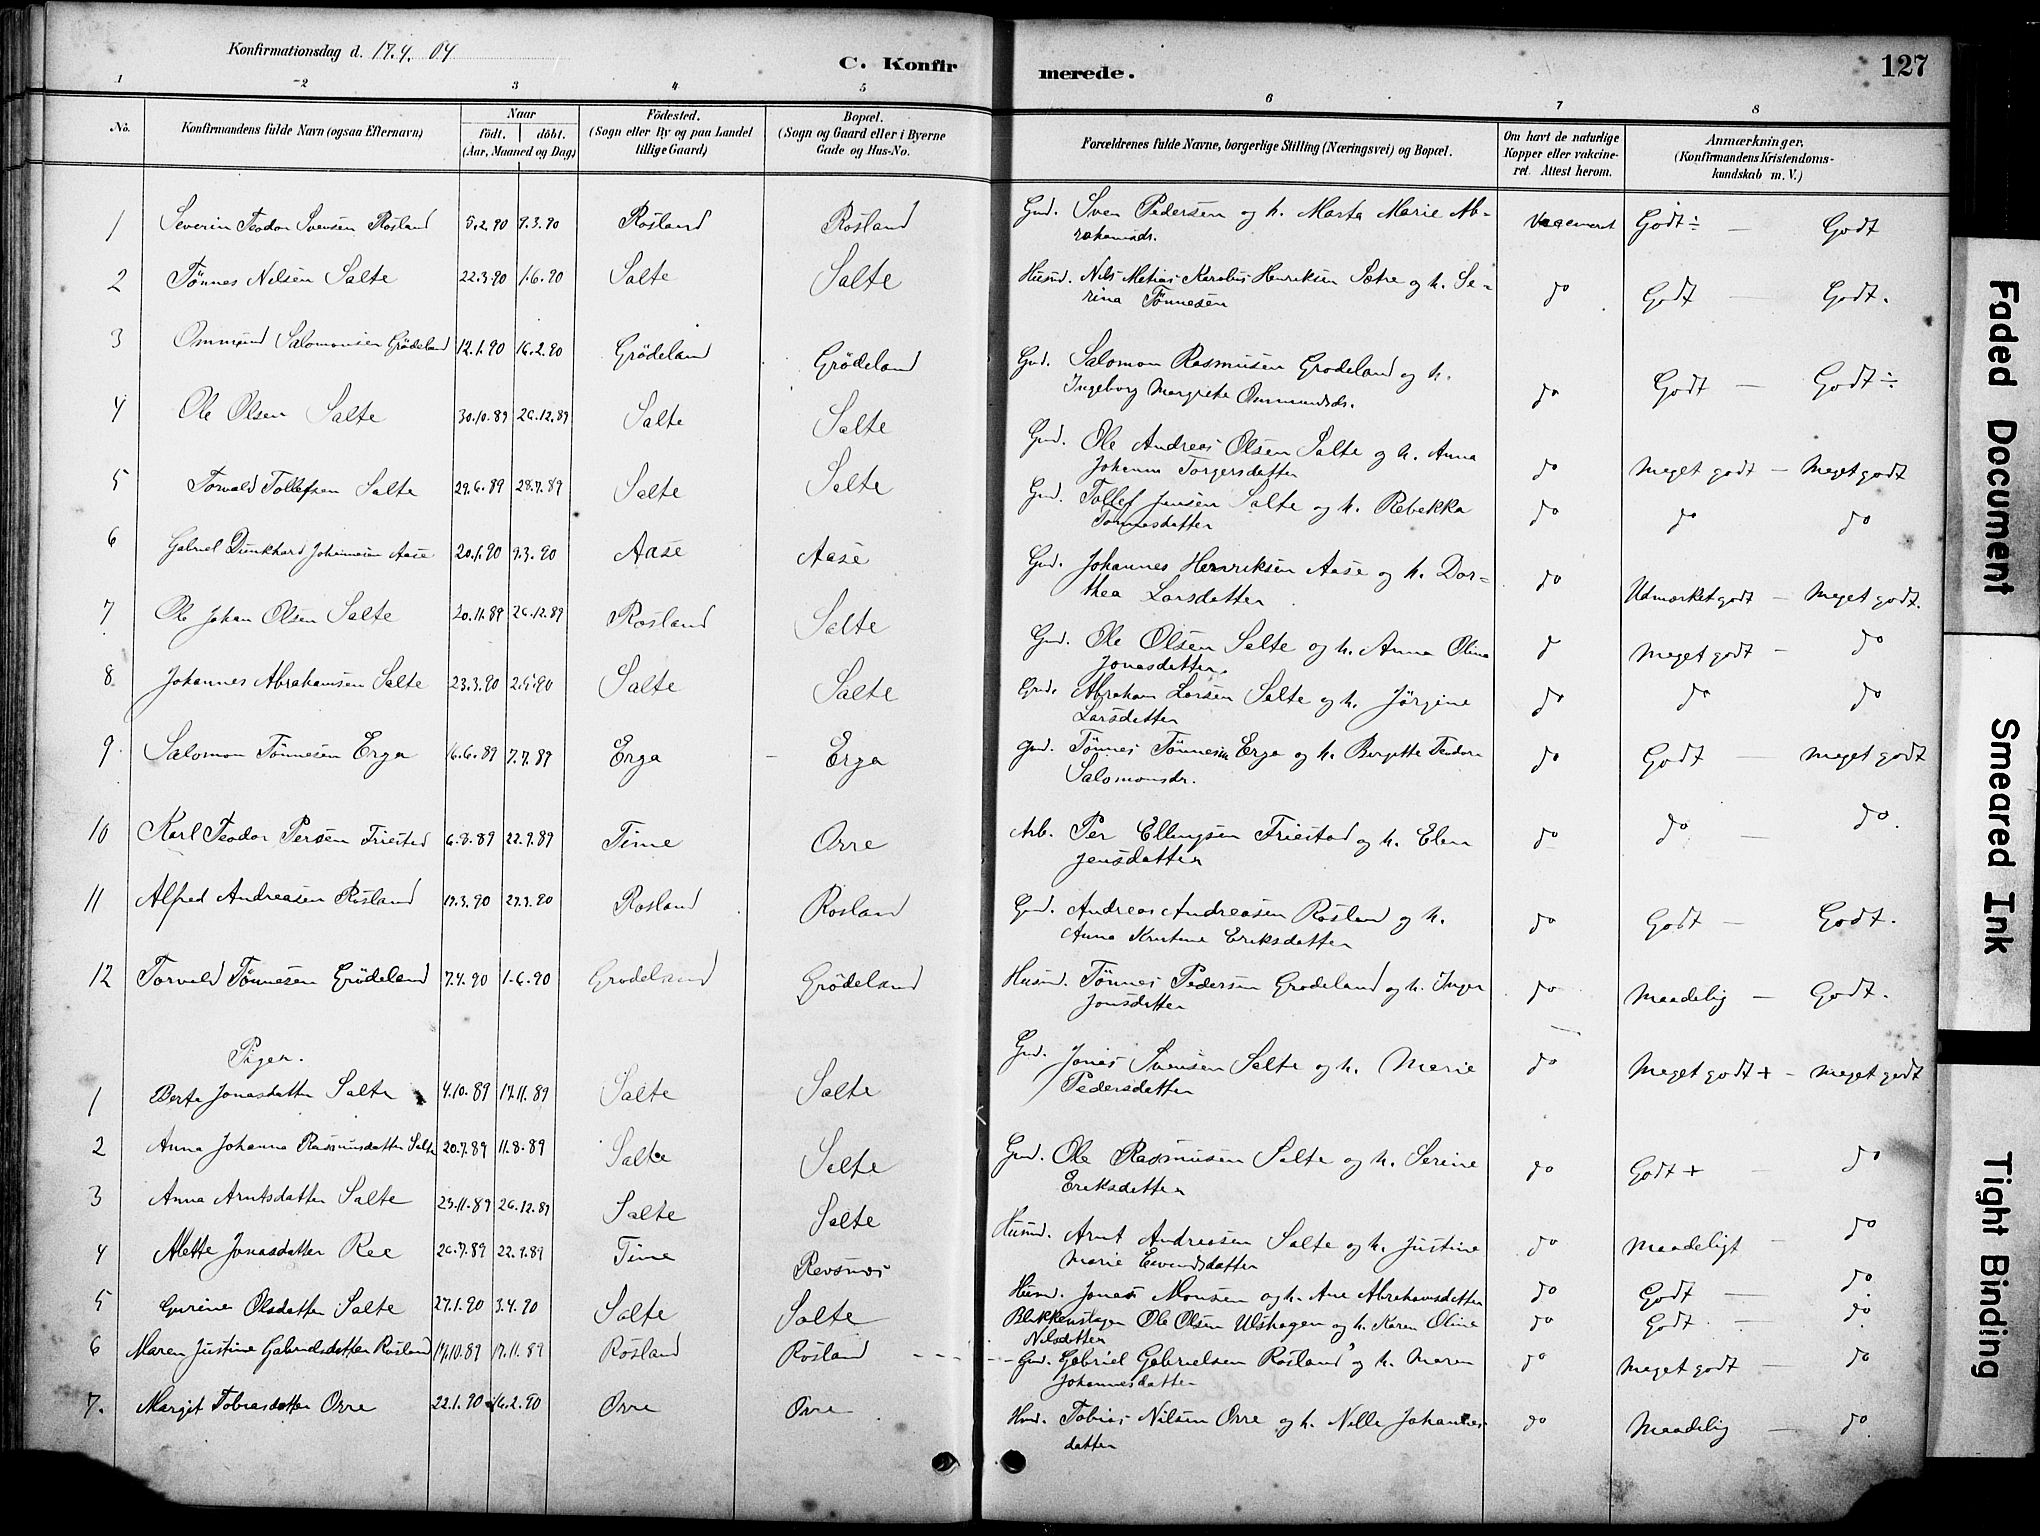 Konfirmationsdag d. 17.4. 04
C. Konfirmerede.
127
1 2 3 4 5 6 7 8
No.
Konfirmandens fulde Navn (ogsaa Efternavn)
Naar
födt. döbt.
(Aar, Maaned og Dag)
Födested.
(Sogn eller By og paa Landet
tillige Gaard)
Bopæl.
(Sogn og Gaard eller i Byerne
Gade og Hus-No.
Forældrenes fulde Navne, borgerlige Stilling (Næringsvei) og Bopæl.
Om havt de naturlige
Kopper eller vakcine-
ret. Attest herom.
Anmærkninger.
(Konfirmandens Kristendoms-
kundskab m. V.)
1 Severin Teodor Svensen Rösland 5.2.90 9.3.90 Rösland Rösland Gmd. Sven Pedersen og h. Marta Marie Ab-
rahamsdr. Vaccineret Godt ÷ — Godt
2 Tönnes Nilsen Salte 22.3.90 1.6.90 Salte Salte Husmd. Nils Matias Karolius Henriksen Sætre og h. Se-
rina Tönnesen do Godt — Godt.
3 Ommund Salomonsen Grödeland 12.1.90 16.2.90 Grödeland Grödeland Gmd. Salomon Rasmusen Grodeland og h.
Ingeborg Margrete Ommundsdr. do Godt — Godt ÷
4 Ole Olsen Salte 30.10.89 26.12.89 Salte Salte Gmd. Ole Andreas Olsen Salte og h. Anna
Johanna Torgersdatter do Meget godt — Meget godt
5 Torvald Tollefsen Salte 29.6.89 28.7.89 Salte Salte Gmd. Tollef Jensen Salte og h. Rebekka
Tönnesdatter do do do
6 Gabriel Dunkhard Johannesen Aase 20.1.90 9.3.90 Aase Aase Gmd. Johannes Henriksen Aase og h. Dor-
thea Larsdatter do Udmærket godt — Meget godt.
7 Ole Johan Olsen Salte 20.11.89 26.12.89 Rosland Salte Gmd. Ole Olsen Salte og h. Anna Olina
Jonasdatter. do Meget godt — do
8. Johannes Abrahamsen Salte 23.3.90 Salte Salte Gmd. Abraham Larsen Salte og h. Jörgine
Larsdatter do do do
9. Salomon Tönnesen Erga 16.6.89 7.7.89 Erga Erga Gmd. Tönnes Tönnesen Erga og h. Bergitte Teodora
Salomonsdr. do Godt — meget godt
10 Karl Teodor Persen Friestad 6.8.89 22.9.89 Time Orre Arb. Per Ellingsen Friestad og h. Elen
Jensdatter do do — do.
11 Alfred Andreasen Rösland 19.3.90 27.4.90 Rosland Rosland Gmd. Andreas Andreasen Rösland og h.
Anna Kristine Eriksdatter do Godt — Godt.
12 Torvald Tönnesen Grödeland 7.4.90 1.6.90 Grodeland Grödeland Husmd. Tönnes Pedersen Grodeland og h. Inger
Jonsdatter do Maadelig — Godt.
Piger.
1 Berta Jonasdatter Salte 4.10.89 17.11.89 Salte Salte Gmd. Jonas Svensen Salte og h. Marie
Pedersdatter do Meget godt + — Meget godt
2 Anna Johanna Rasmusdatter Salte 20.7.89 11.8.89 Salte Salte Gmd. Ole Rasmusen Salte og h. Serine
Eriksdatter do Godt + — do
3 Anna Arntsdatter Salte 23.11.89 26.12.89 Salte Salte Husmd. Arnt Andreasen Salte og h. Justine
Marie Eivindsdatter do Maadeligt — do
4 Mette Jonasdatter Ree 26.7.89 22.9.89 Time Revsnes Husmd. Jonas Monsen og h. Ane Abrahamsdatter do Godt — do
5 Gurine Olsdatter Salte 27.1.90 3.4.90 Salte Salte Blikkenslager Ole Olsen Ulshagen og h. Karen Oline
Nilsdatter do Godt. — do.
6 Maren Justine Gabrielsdatter Rösland 19.10.89 17.11.89 Rösland Rösland Gmd. Gabriel Gabrielsen Rosland og h. Maren
Johannesdatter do Meget godt do
7. Margit Tobiasdatter Orre 22.1.90 16.2.90 Orre Orre Hmd. Tobias Nilsen Orre og h. Nelle Johannes-
datter do Maadelig — do.
Faded Document
Smeared Ink
Tight Binding